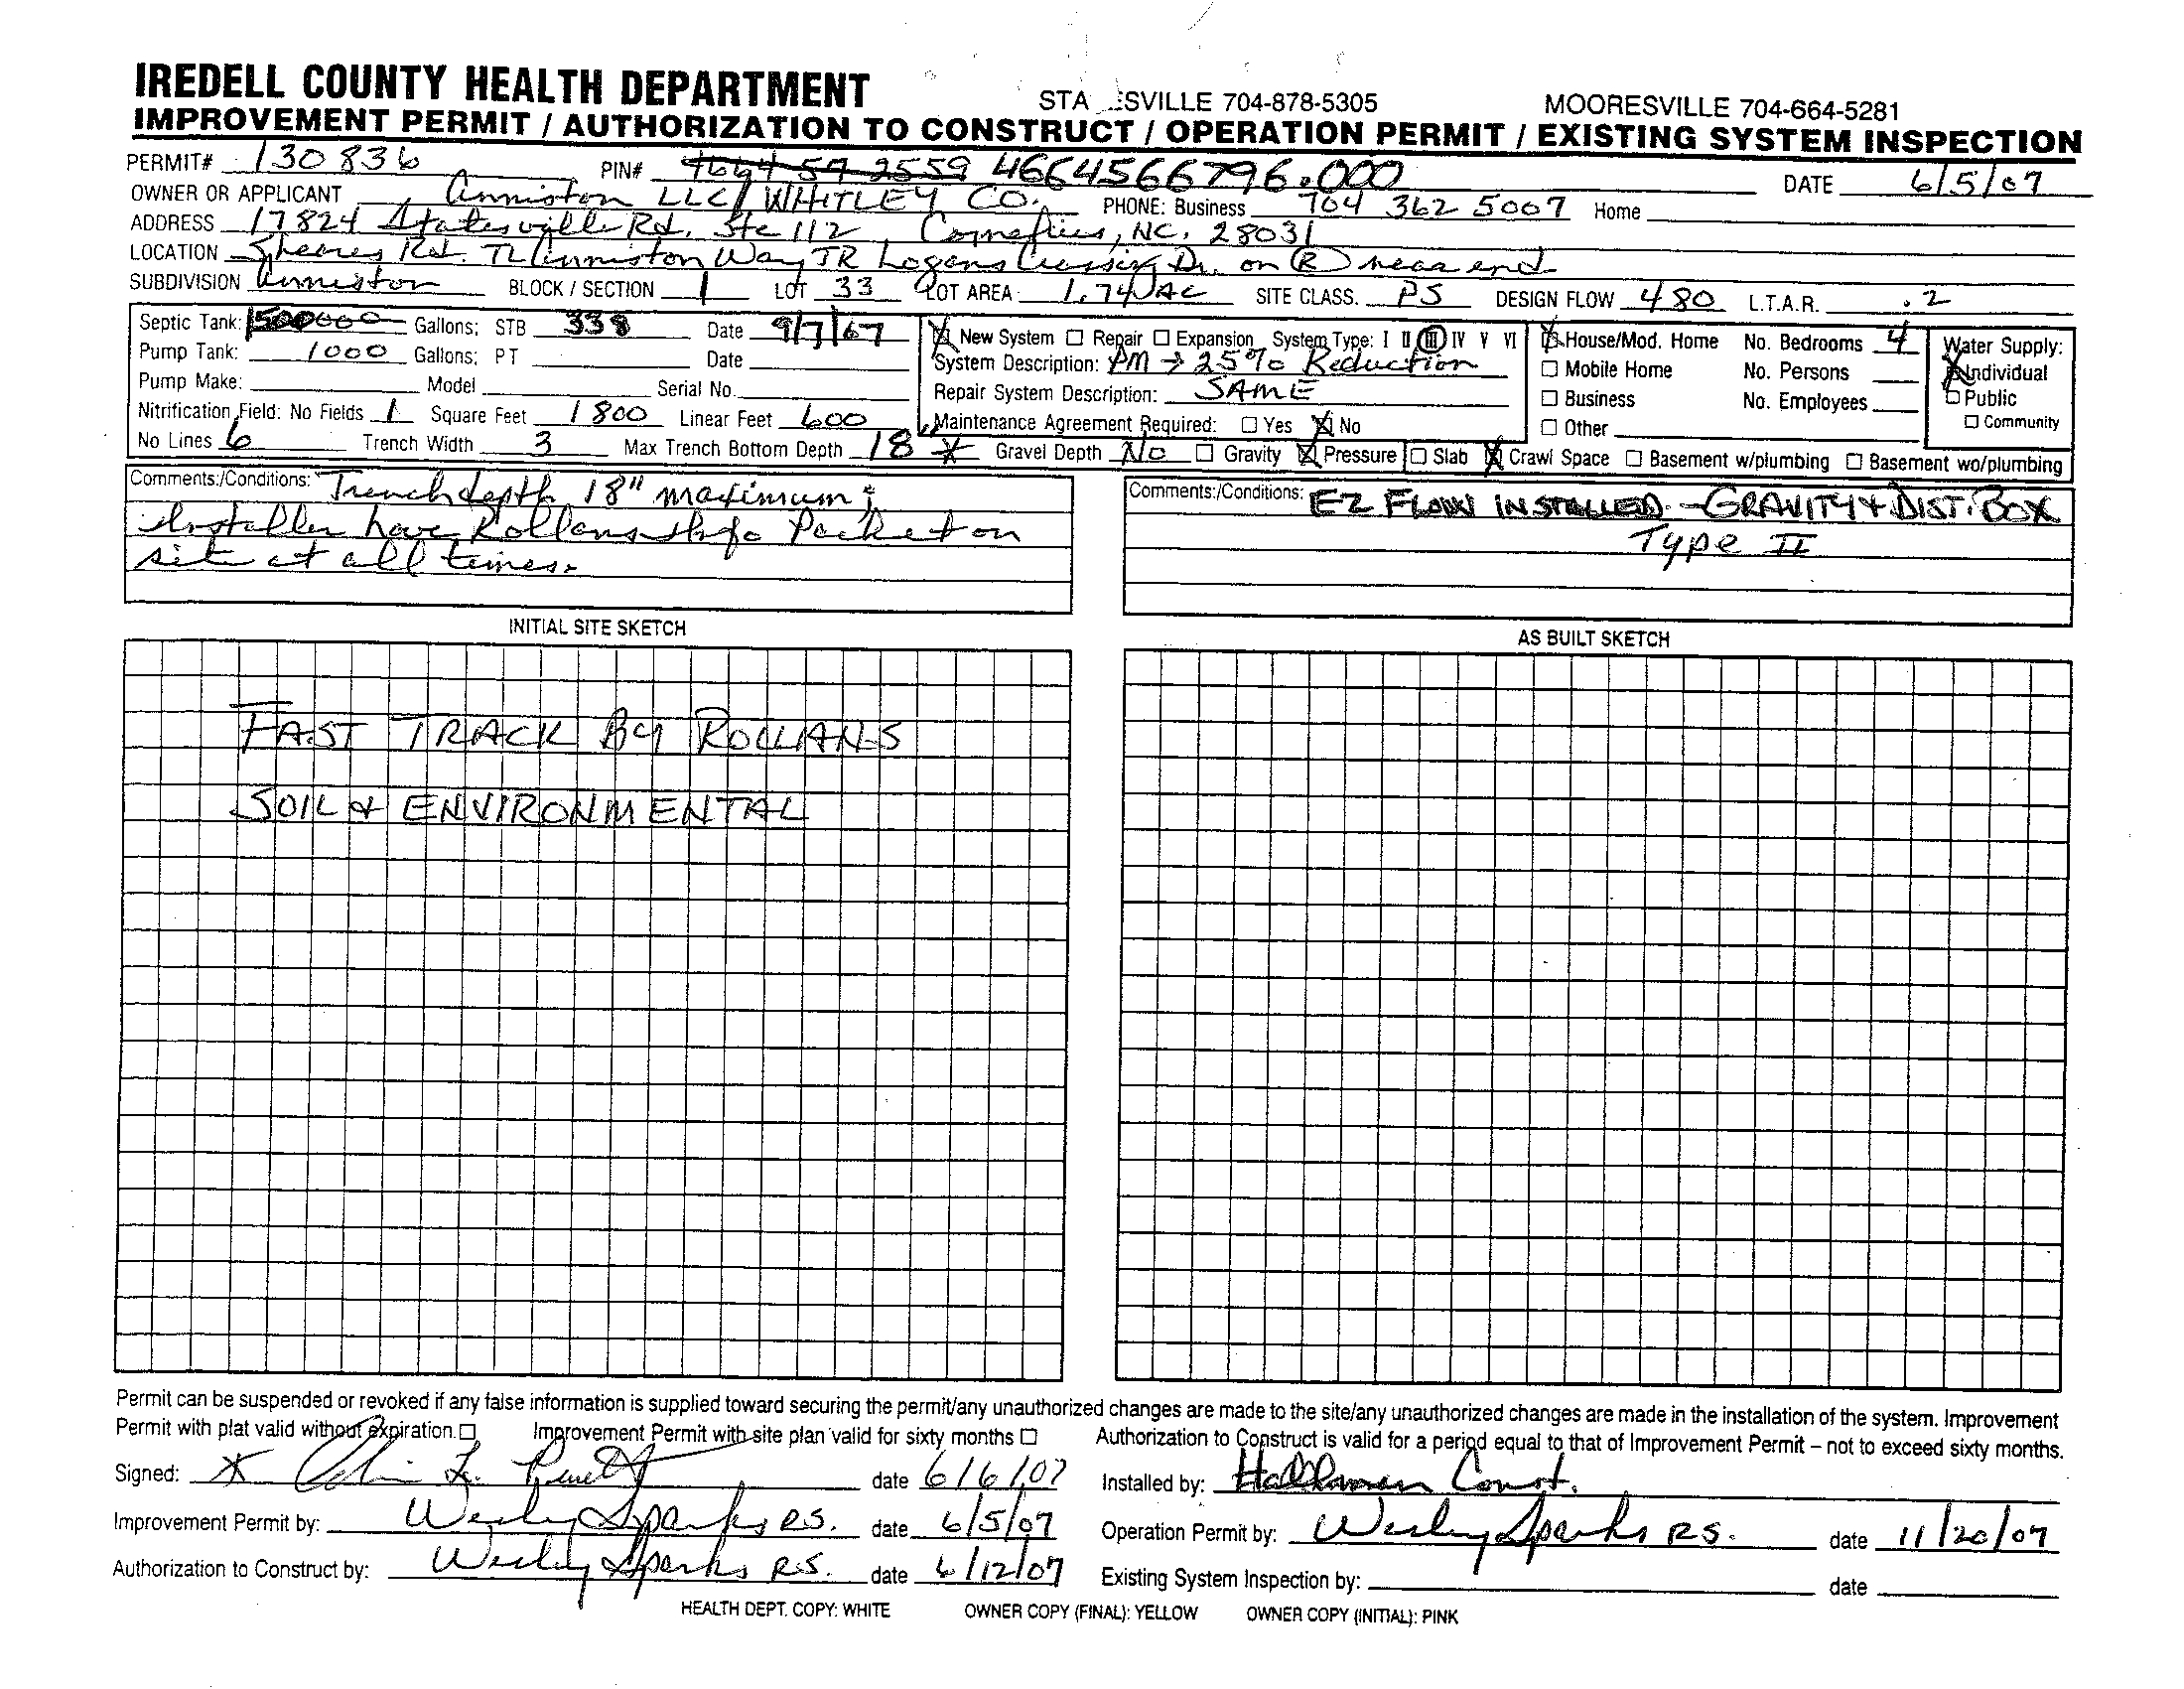 IREDELL COUNTY HEALTH DEPARTMENT STA ESVILLE 704-878-5305 MOORESVILLE 704-664-5281
IMPROVEMENT PERMIT / AUTHORIZATION TO CONSTRUCT / OPERATION PERMIT / EXISTING SYSTEM INSPECTION
PERMIT# 130836 PIN# 4664566796.000 DATE 6/5/07
OWNER OR APPLICANT Anniston LLC / WHITLEY CO. PHONE: Business 704 362 5007 Home
ADDRESS 17824 Statesville Rd. Ste 112 Cornelius, NC. 28031
LOCATION Sheares Rd. TL Anniston Way TR Logans Crossing Dr. on (R) near end
SUBDIVISION Anniston BLOCK / SECTION 1 LOT 33 LOT AREA 1.74 AC SITE CLASS. PS DESIGN FLOW 480 L.T.A.R. .2
Septic Tank: Gallons; STB 338 Date 9/7/07
Pump Tank: 1000 Gallons; PT Date
Pump Make: Model Serial No.
Nitrification Field: No Fields 1 Square Feet 1800 Linear Feet 600
No Lines 6 Trench Width 3 Max Trench Bottom Depth 18" * Gravel Depth No ☐ Gravity ☒ Pressure ☐ Slab ☒ Crawl Space ☐ Basement w/plumbing ☐ Basement wo/plumbing
☒ New System ☐ Repair ☐ Expansion System Type: I II III IV V VI
System Description: PM → 25% Reduction
Repair System Description: SAME
Maintenance Agreement Required: ☐ Yes ☒ No
☒ House/Mod. Home No. Bedrooms 4
☐ Mobile Home No. Persons
☐ Business No. Employees
☐ Other
Water Supply:
☒ Individual
☐ Public
☐ Community
Comments:/Conditions: Trench depth 18" maximum;
Installer have Rollans Info Packet on
site at all times.
Comments:/Conditions: EZ FLOW INSTALLED - GRAVITY + DIST. BOX
Type II
INITIAL SITE SKETCH
FAST TRACK By ROLLANS
SOIL & ENVIRONMENTAL
AS BUILT SKETCH
Permit can be suspended or revoked if any false information is supplied toward securing the permit/any unauthorized changes are made to the site/any unauthorized changes are made in the installation of the system. Improvement
Permit with plat valid without expiration. ☐ Improvement Permit with site plan valid for sixty months ☐ Authorization to Construct is valid for a period equal to that of Improvement Permit – not to exceed sixty months.
Signed: X date 6/6/07 Installed by: Const.
Improvement Permit by: Wesley Sparks RS. date 6/5/07 Operation Permit by: Wesley Sparks RS. date 11/20/07
Authorization to Construct by: Wesley Sparks R.S. date 6/12/07 Existing System Inspection by: date
HEALTH DEPT. COPY: WHITE OWNER COPY (FINAL): YELLOW OWNER COPY (INITIAL): PINK